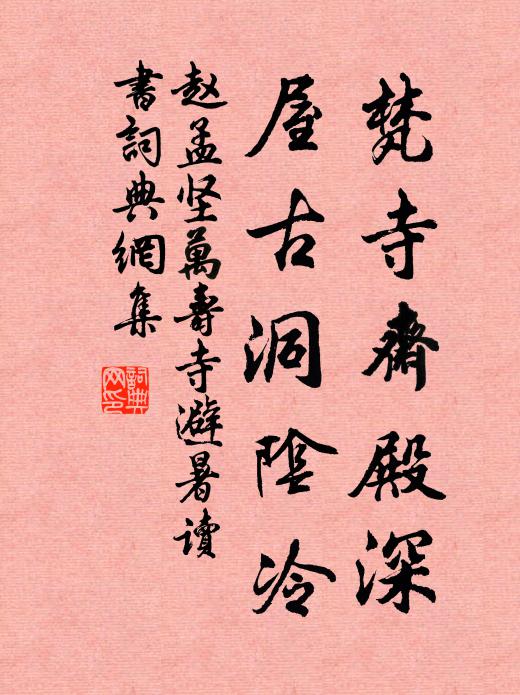 梵寺齋殿深
屋古洞陰冷
赵孟坚萬壽寺避暑读
書詞典網集
詞典
网印